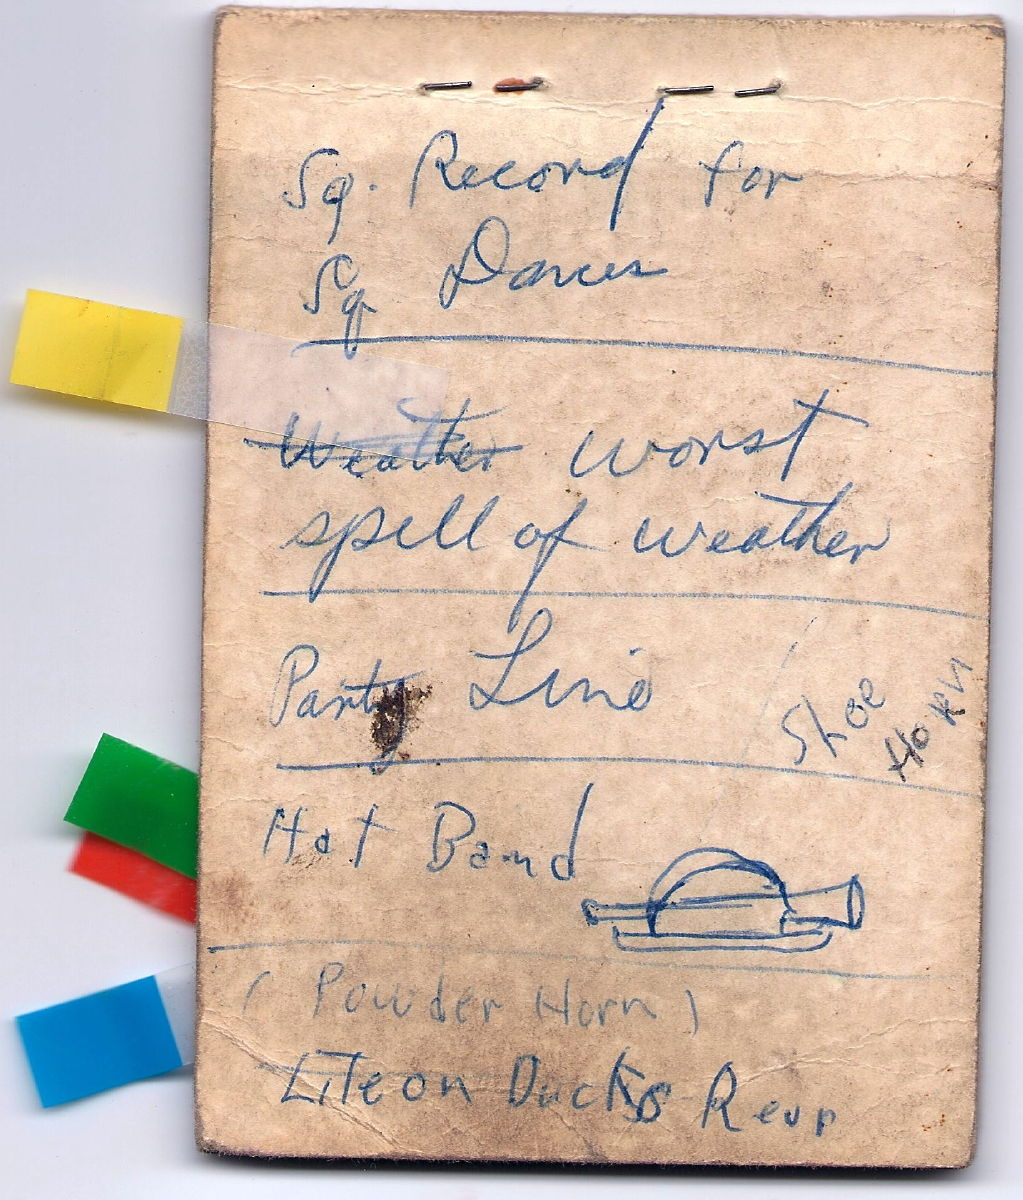 Sq. Record for
Sq Dances
Weather worst
spell of weather
Party Line
Shoe
Horn
Hat Band
(Powder Horn)
Lite on Ducks Rear